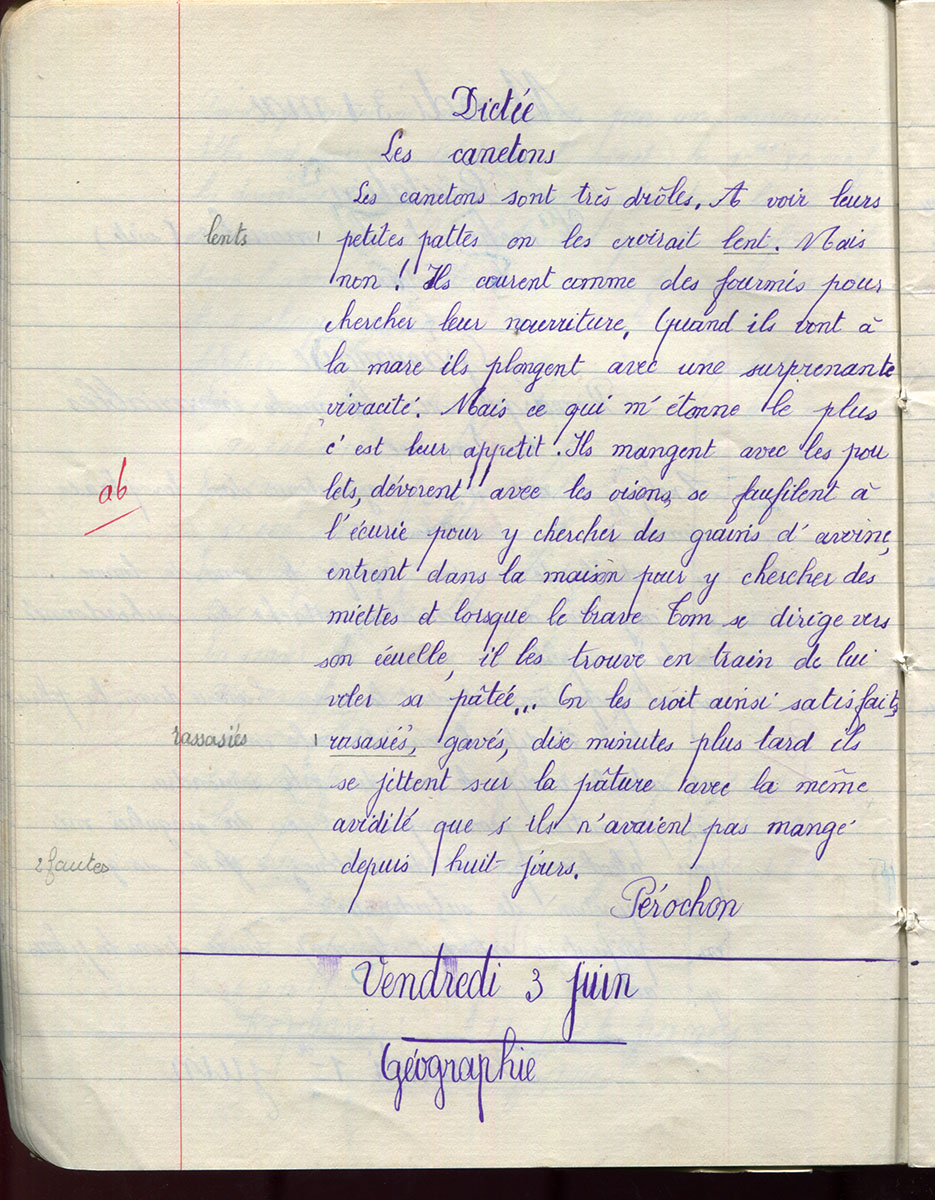 Dictée
Les canetons
Les canetons sont très drôles. A voir leurs
lents petites pattes on les croirait lent. Mais
non ! Ils courent comme des fourmis pour
chercher leur nourriture. Quand ils vont à
la mare ils plongent avec une surprenante
vivacité. Mais ce qui m'étonne le plus
c'est leur appetit. Ils mangent avec les pou
ab
lets, dévorent avec les oisons, se faufilent à
l'écurie pour y chercher des grains d'avoine,
entrent dans la maison pour y chercher des
miettes et lorsque le brave Tom se dirige vers
son écuelle, il les trouve en train de lui
voler sa pâtée... On les croit ainsi satisfaits,
rassasiés rasasiés, gavés, dix minutes plus tard ils
se jettent sur la pâture avec la même
avidité que s'ils n'avaient pas mangé
2 fautes depuis huit jours.
Pérochon
Vendredi 3 juin
Géographie